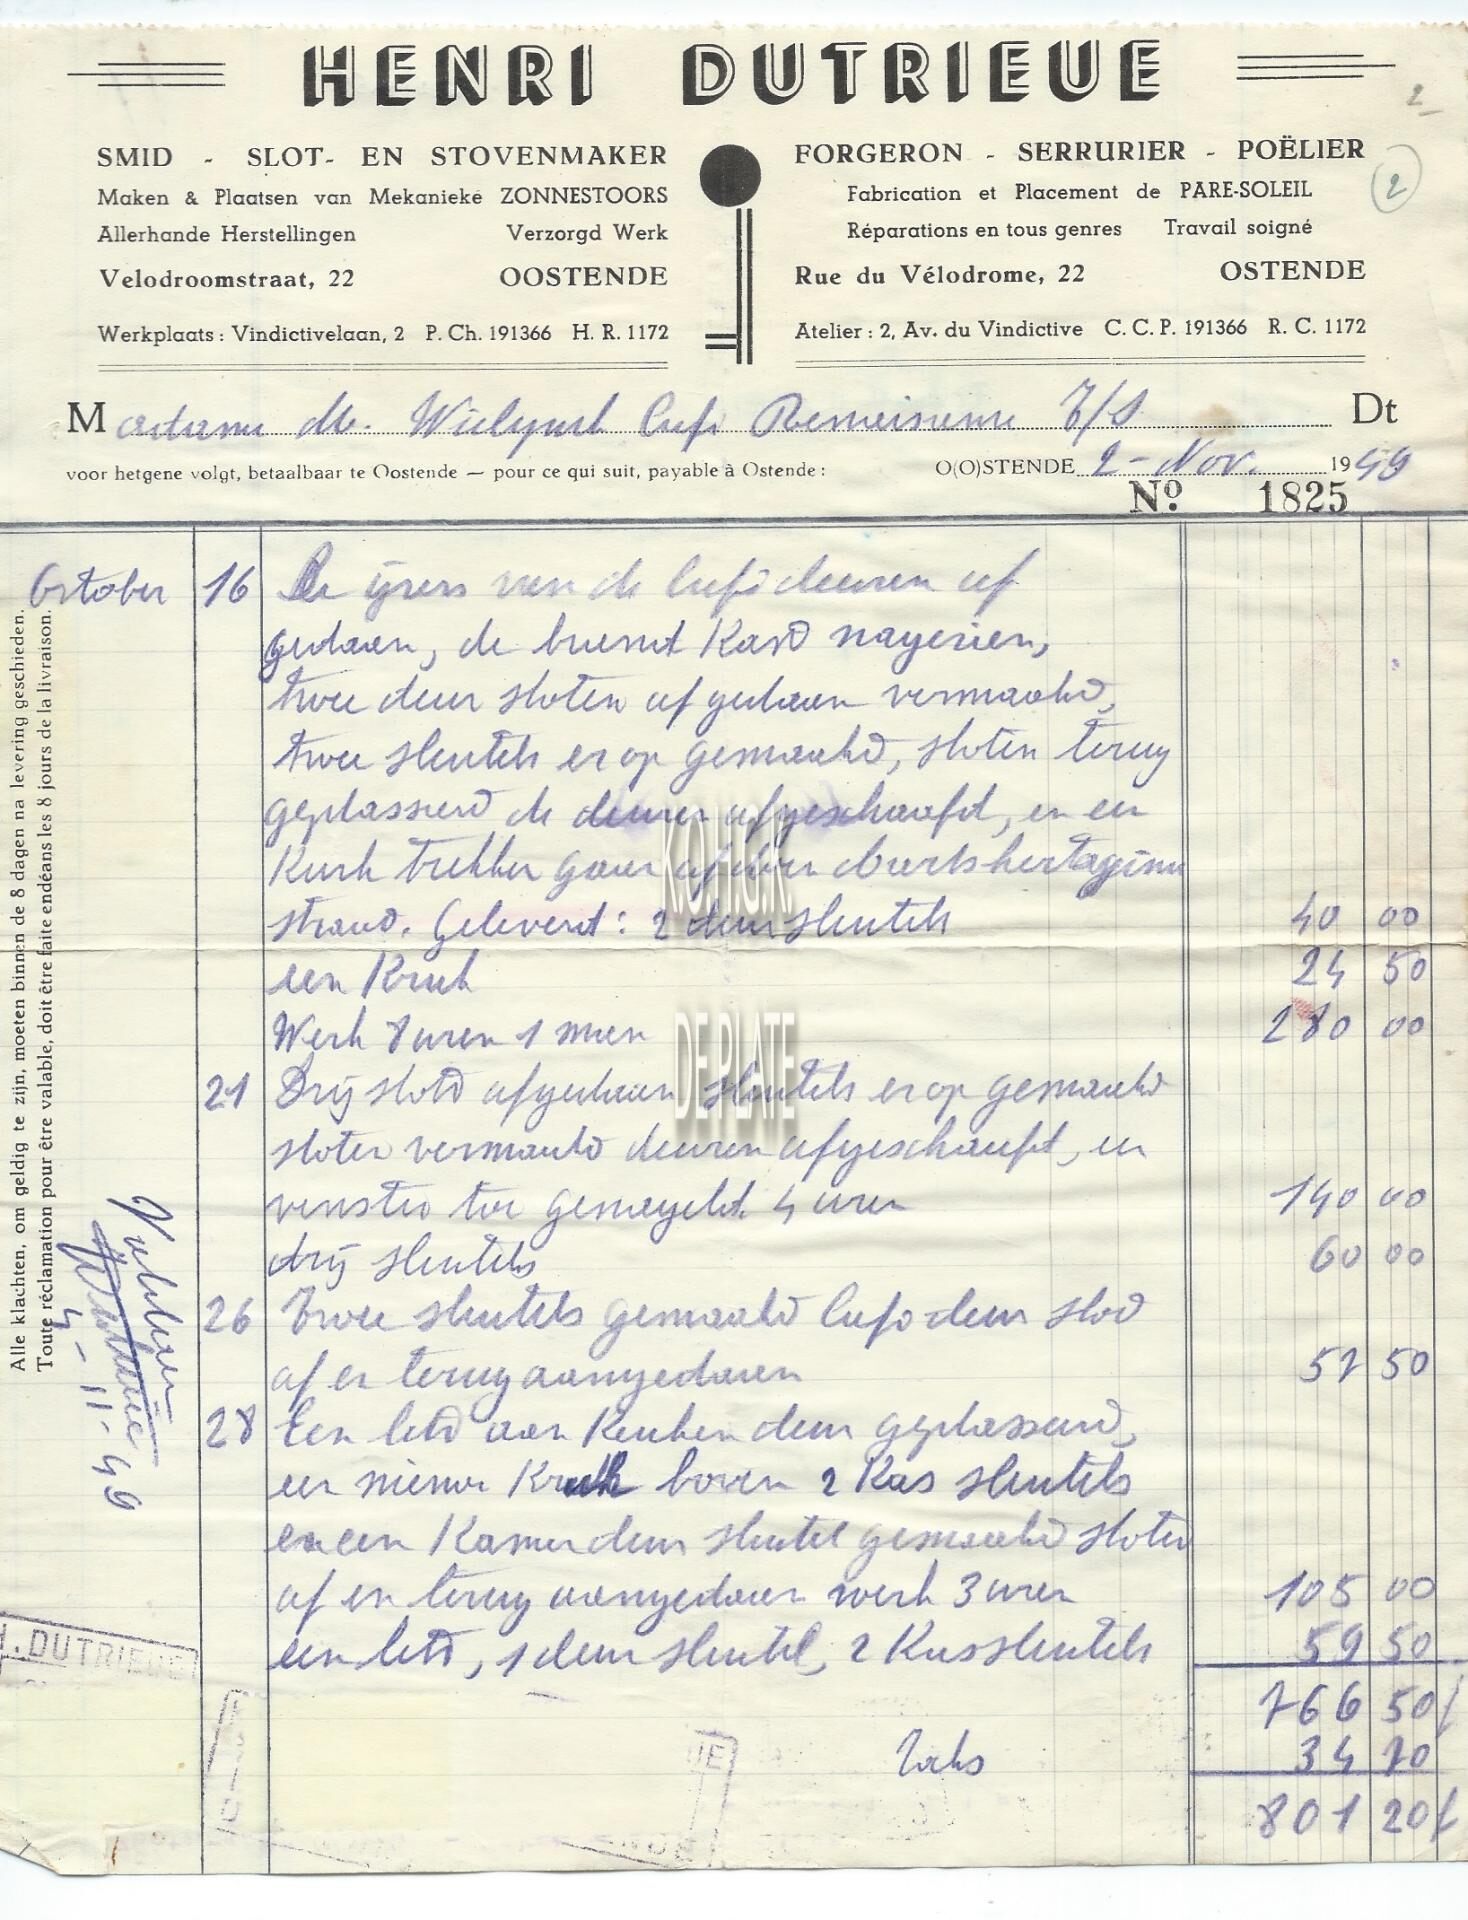 HENRI DUTRIEUE
2
SMID - SLOT- EN STOVENMAKER
Maken & Plaatsen van Mekanieke ZONNESTOORS
Allerhande Herstellingen Verzorgd Werk
Velodroomstraat, 22 OOSTENDE
Werkplaats : Vindictivelaan, 2 P. Ch. 191366 H. R. 1172
FORGERON - SERRURIER - POËLIER
Fabrication et Placement de PARE-SOLEIL
Réparations en tous genres Travail soigné
Rue du Vélodrome, 22 OSTENDE
Atelier : 2, Av. du Vindictive C. C. P. 191366 R. C. 1172
2
Madame Dt
voor hetgene volgt, betaalbaar te Oostende — pour ce qui suit, payable à Ostende :
O(O)STENDE 2 - Nov. 1949
Nº 1825
October 16 De ijzers van de deuren af
gedaen, de Kard
twee deur sloten af gedaen vermaakd,
twee sleutels er op gemaakd, sloten terug
geplasserd de deuren afgeschaafd, en en
Kurk trekker
straad. Geleverd : 2 deur sleutels 40 00
een Kruk 24 50
Werk 8 uren 1 man 280 00
21 Drij slots afgedaen sleutels er op gemaakd
sloten vermaakd deuren afgeschaafd, en
venster toe genaegeld 4 uren 140 00
drij sleutels 60 00
26 Twee sleutels gemaakd deur slod
af en terug aangedaen 57 50
28 Een aan Keuken deur geplasserd,
een nieuw Kruk boven 2 Kas sleutels
en een Kamer deur sleutel gemaakd sloten
af en terug aangedaen werk 3 uren 105 00
een, 1 deur sleutel, 2 Kassleutels 59 50
766 50 f
Taks 34 70
801 20 f
Alle klachten, om geldig te zijn, moeten binnen de 8 dagen na levering geschieden.
Toute réclamation pour être valable, doit être faite endéans les 8 jours de la livraison.
Voldaen
H Dutrieue
4 - 11 - 49
H. DUTRIEUE
KON. H.G.K.
DE PLATE